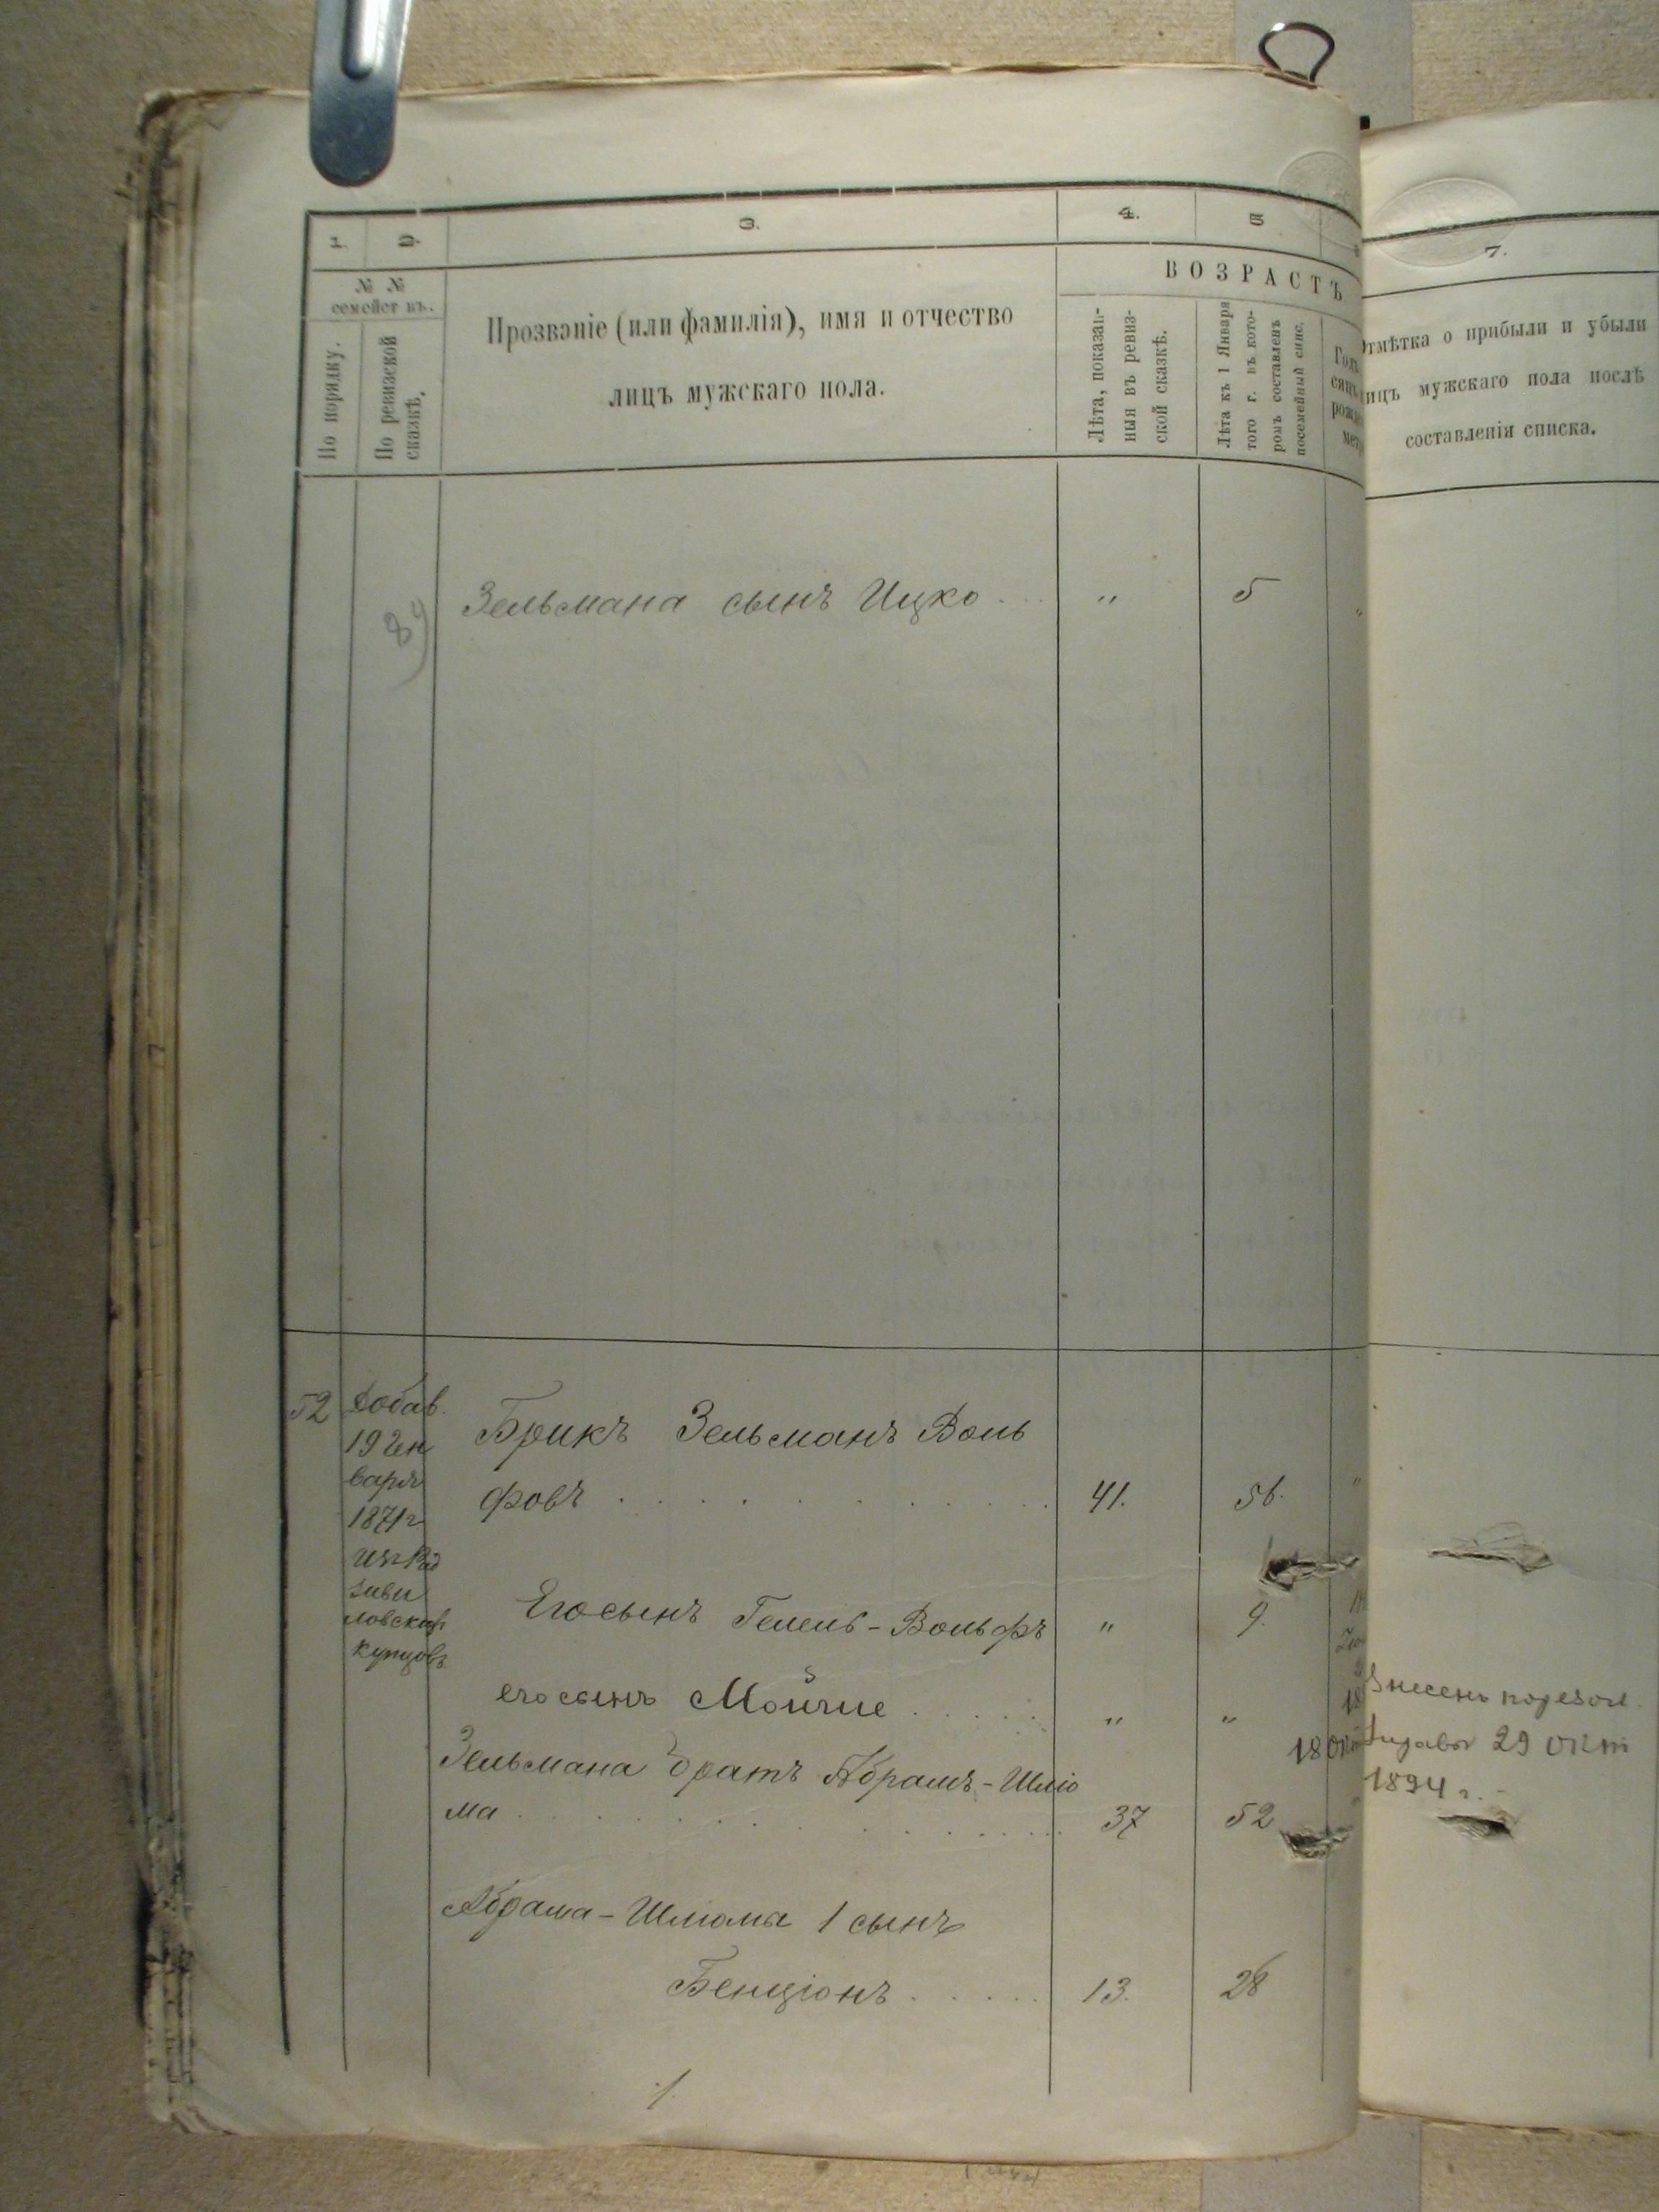 1. 2. 3. 4. 5 7.
№ №
семействъ.
По порядку.
По ревизской
сказкѣ.
Прозваніе (или фамилія), имя и отчество
лицъ мужскаго пола.
ВОЗРАСТЪ
Лѣта, показан-
ныя въ ревиз-
ской сказкѣ.
Лѣта къ 1 Января
того г. въ кото-
ромъ составленъ
посемейный спис.
Отмѣтка о прибыли и убыли
лицъ мужскаго пола послѣ
составленія списка.
Зельмана сынъ Ицко . . . " 5 "
89
52 Добав.
19 Ген
варя
1871 г
изъ Рад
зиви
ловских
купцовъ
Брикъ Зельманъ Воль
фовъ . . . . . . . . . . 41. 56. "
Его сынъ Гецель-Вольфъ " 9.
его сынъ Мойше . . . . . " "
Зельмана братъ Абрамъ-Шліо
ма . . . . . . . . . . 37 52
Абрама-Шлиомы 1 сынъ
Бенціонъ . . . . . 13. 28
Внесенъ по резол.
29 окт
1894 г.